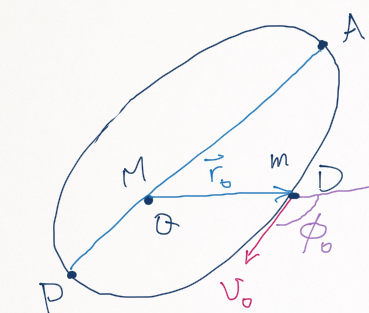 A
M
r⃗₀
m
D
O
ϕ₀
P
v₀